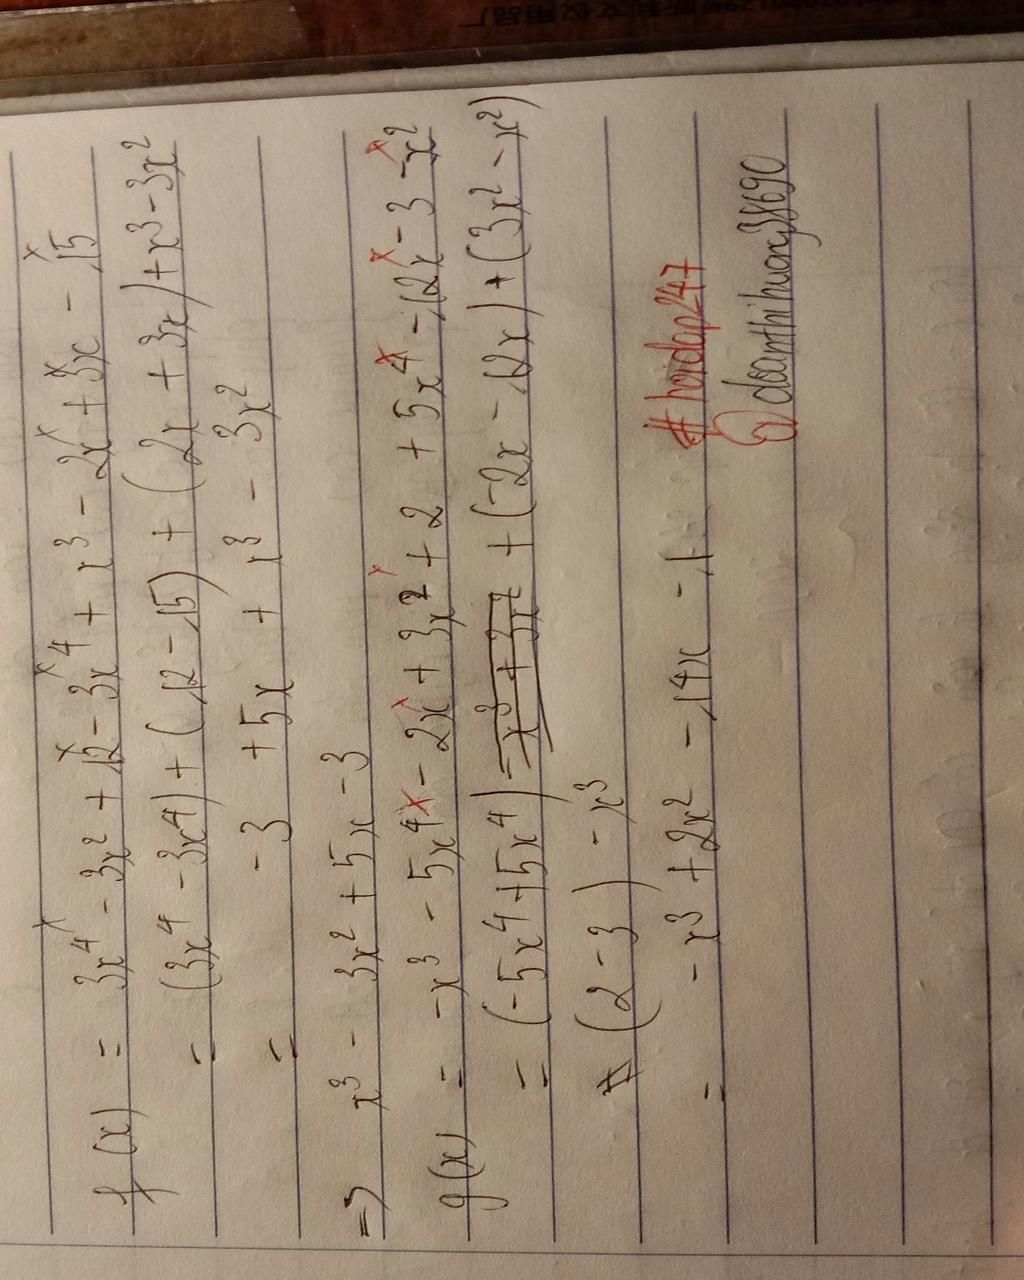 f(x) = 3x⁴ - 3x² + 12 - 3x⁴ + x³ - 2x + 3x - 15
= (3x⁴ - 3x⁴) + (12 - 15) + (2x + 3x) + x³ - 3x²
= - 3 + 5x + x³ - 3x²
=> x³ - 3x² + 5x - 3
g(x) = -x³ - 5x⁴ - 2x + 3x² + 2 + 5x⁴ - 12x - 3 - x²
= (-5x⁴ + 5x⁴) - x³ + 3x² + (-2x - 12x) + (3x² - x²)
(2 - 3) - x³
= - x³ + 2x² - 14x - 1
#hoidap247
doanthihuong38690